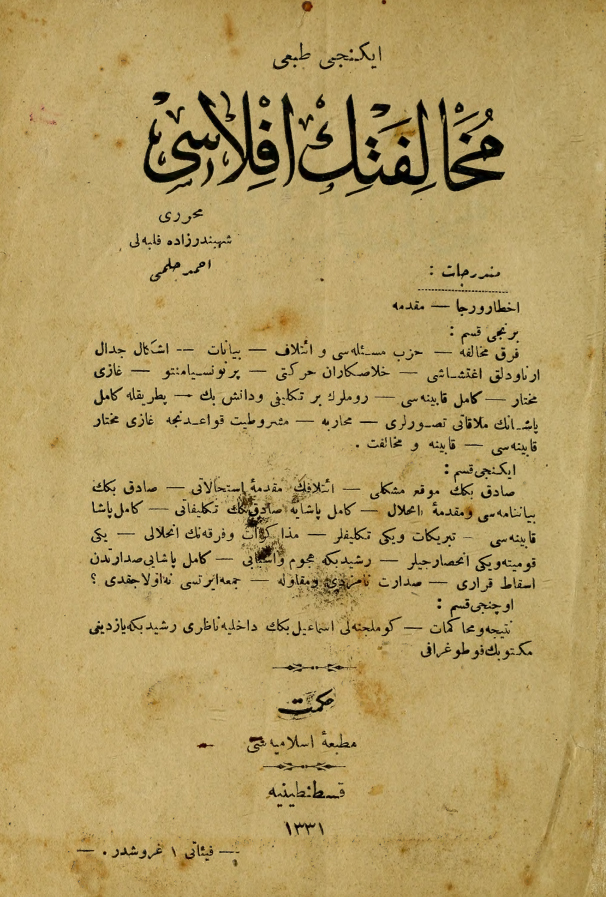 ایکنجی طبعی
مُخَالِفَتِڭ اِفْلَاسی
محرری
شهبندرزاده فلبه‌لی
احمد حلمی
مندرجات :
اخطار و رجا — مقدمه
برنجی قسم :
فرق مخالفه — حزب مسئله‌سی و ائتلاف — بیانات — اشكال جدال
ارناودلق اغتشاشی — خلاصكاران حركتی — پرنونسیامنتو — غازی
مختار — كامل قابینه‌سی — روملرك بر تكلیفی و دانش بك — پطریقله كامل
پاشانك ملاقاتی تصورلری — محاربه — مشروطیت قواعدنجه غازی مختار
قابینه‌سی — قابینه و مخالفت .
ایكنجی قسم :
صادق بكك موقع مشكلی — ائتلافك مقدمهٔ استحالاتی — صادق بكك
بیاننامه‌سی و مقدمهٔ انحلال — كامل پاشایه صادق بكك تكلیفاتی — كامل پاشا
قابینه‌سی — تبریكات ویكی تكلیفلر — مذاكرات وفرقه‌نك انحلالی — یكی
قومیته ویكی انحصارجیلر — رشید بكه هجوم و اسبابی — كامل پاشایی صدارتدن
اسقاط قراری — صدارت نامزدی و مقاوله — جمعه ایرتسی نه اولاجقدی ؟
اوچنجی قسم :
نتیجه و محاكمات — كوملجنه‌لی اسماعیل بكك داخلیه ناظری رشید بكه یازدیغی
مكتوبك فوطوغرافی
حكمت
مطبعهٔ اسلامیه‌سی
قسطنطینیه
١٣٣١
— فیئاتی ١ غروشدر . —